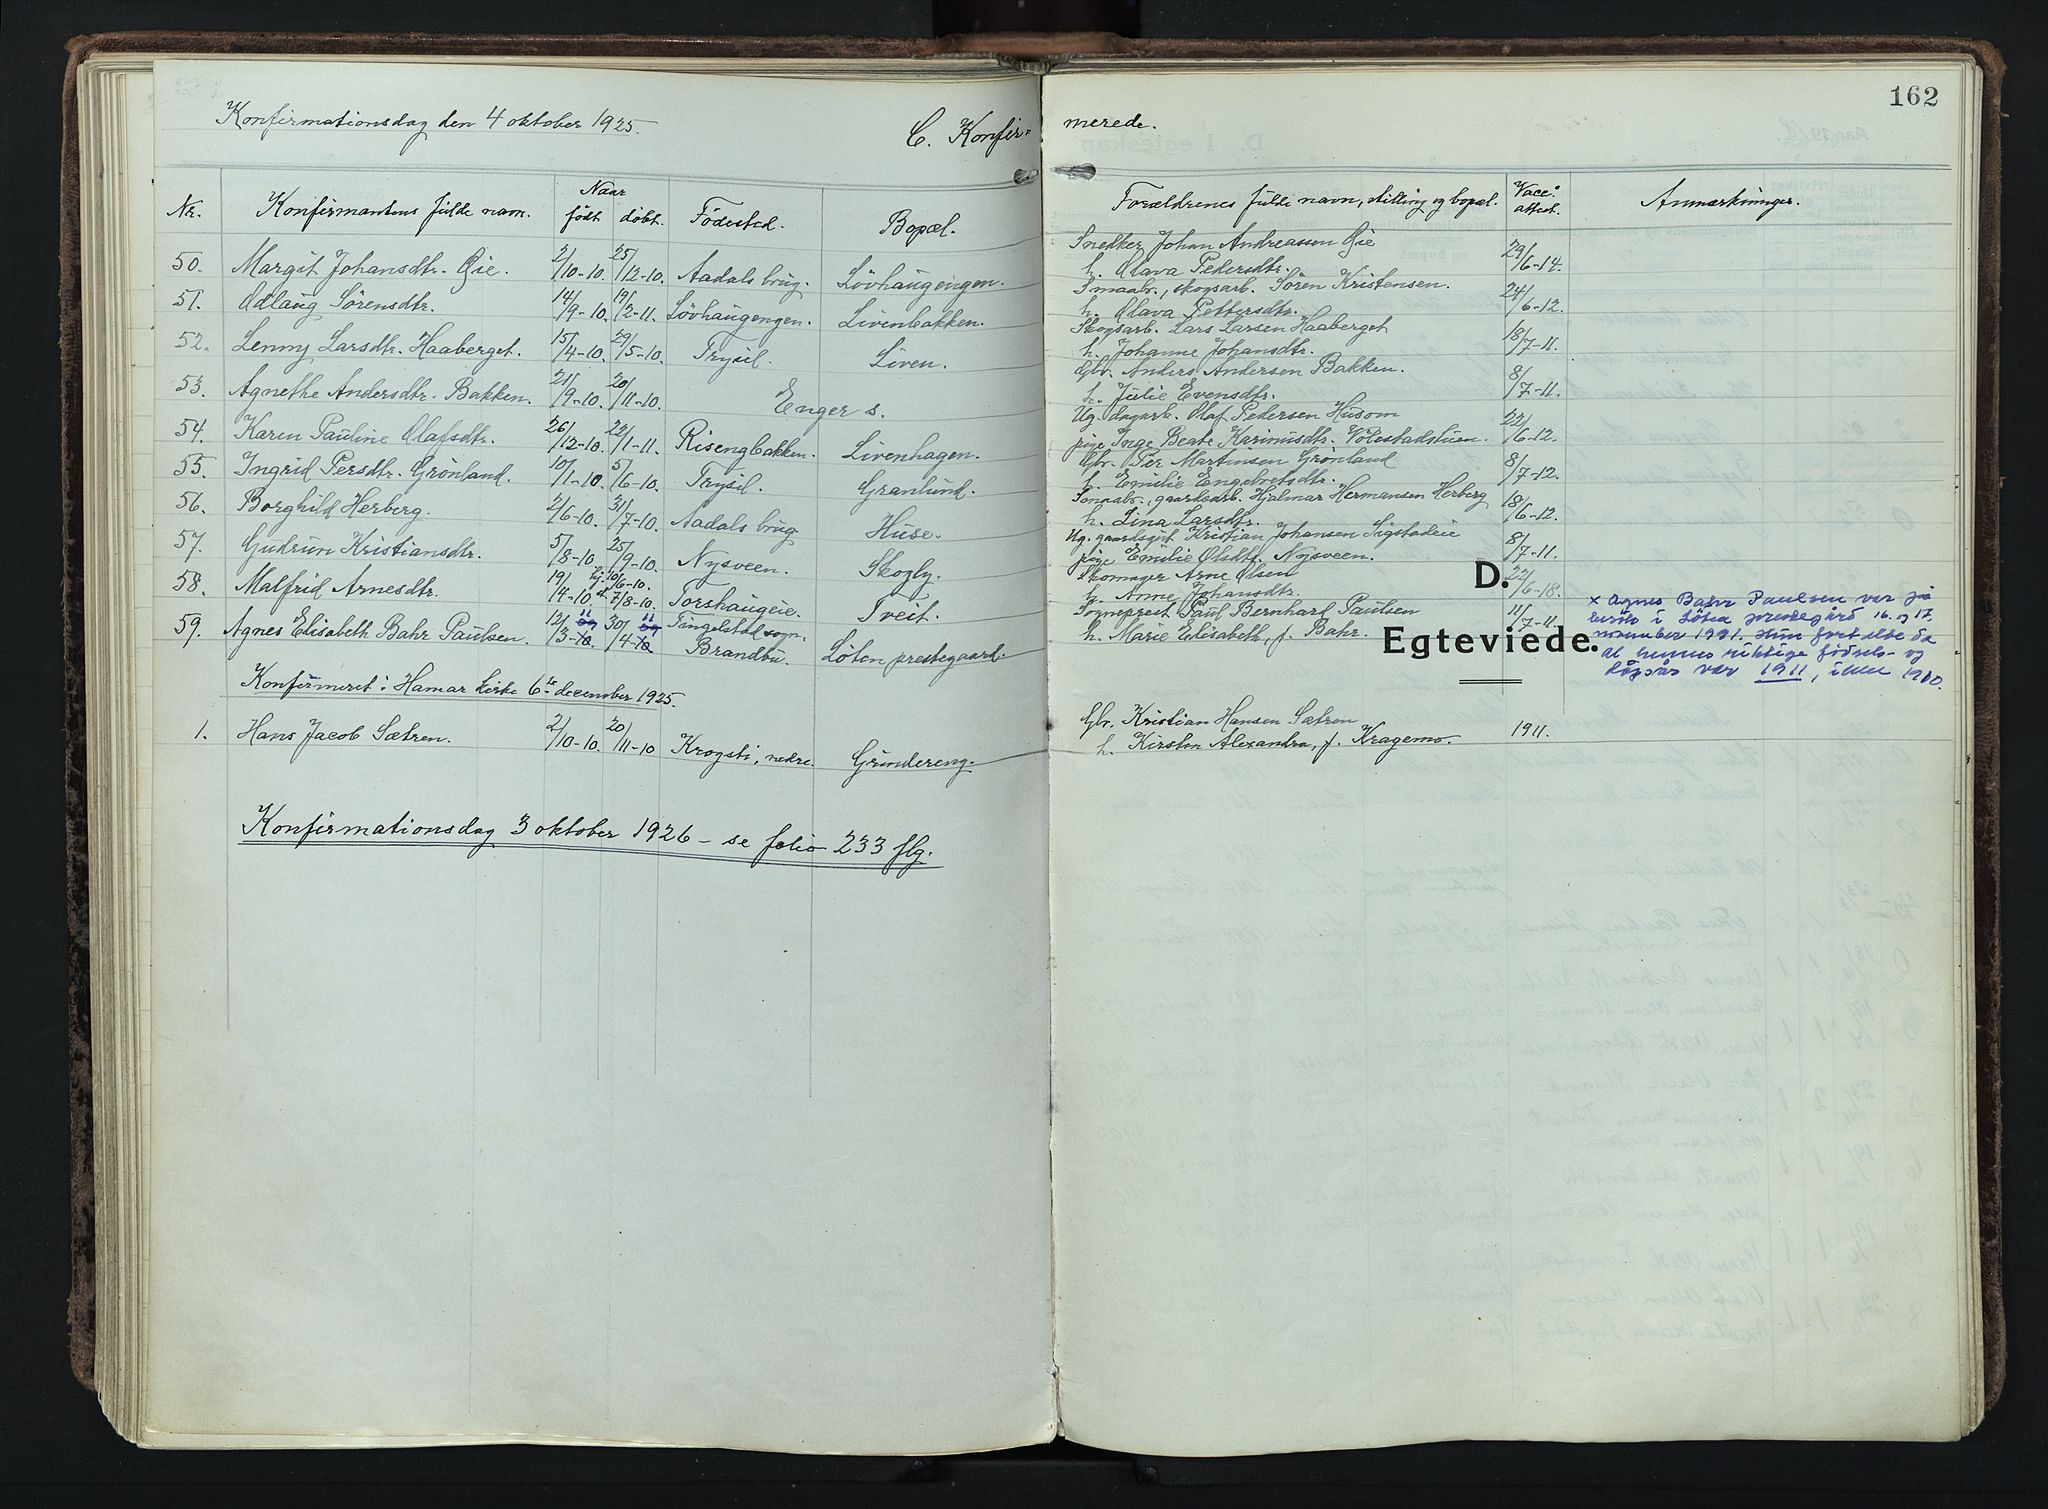 162
Konfirmationsdag den 4 oktober 1925.
C. Konfir= merede.
Nr. Konfirmantens fulde navn. Naar født døbt. Fødested. Bopæl. Forældrenes fulde navn, stilling og bopæl. Vacc. attest. Anmerkninger.
50. Margit Johansdtr. Øie. 2/10-10. 25/12-10. Aadals brug. Lövhaugengen. Snedker Johan Andreassen Øie 29/6-14.
h. Olava Pedersdtr.
51. Odlaug Sørensdtr. 14/9-10. 19/2-11. Lövhaugengen. Livenbakken. Smaabr., skogsarb. Søren Kristensen. 24/6-12.
h. Olava Pettersdtr.
52. Lenny Larsdtr. Haaberget. 15/4-10. 29/5-10. Trysil. Liven. Skogsarb. Lars Larsen Haaberget 18/7-11.
h. Johanne Johansdtr.
53. Agnethe Andersdtr. Bakken. 21/9-10. 20/11-10. Enger s. Gbr. Anders Andersen Bakken. 8/7-11.
h. Julie Evensdtr.
54. Karen Pauline Olafsdtr. 26/12-10. 22/1-11. Risengbakken. Livenhagen. Ug. dagarb. Olaf Pedersen Husom 22/6-12.
pige Inge Beate Karinusdtr. Volestadstuen.
55. Ingrid Persdtr. Grønland. 10/1-10. 5/6-10. Trysil. Granlund. Gbr. Per Martinsen Grønland 8/7-12.
h. Emilie Engebretsdtr.
56. Borghild Herberg. 2/6-10. 31/7-10. Aadals brug. Huse. Smaabr., gaardsarb. Hjalmar Hermansen Herberg 18/6-12.
h. Lina Larsdtr.
57. Gudrun Kristiansdtr. 5/8-10. 25/9-10. Nysveen. Skogly. Ug. gaardsgut Kristian Johansen Sigstadeie 8/7-11.
pige Emilie Olsdtr. Nysveen.
58. Malfrid Arnesdtr. 19/4-10. hj. 10/6-10. st. 7/8-10. Torshaugeie. Tveit. Skomager Arne Olsen 22/6-18.
h. Anne Johansdtr.
59. Agnes Elisabeth Bahr Paulsen. 12/3-10. 11 30/4-10 11 Tingelstad sogn, Brandbu. Løten prestegaard. Sogneprest Paul Bernhard Paulsen 11/7-11.
h. Marie Elisabeth, f. Bahr.
D.
Egteviede.
x Agnes Bahr Paulsen var på
besök i Löten prestegård 16. og 17.
november 1991. Hun fortalte da
at hennes riktige fødsels- og
dåpsår var 1911, ikke 1910.
Konfirmeret i Hamar kirke 6te december 1925.
1. Hans Jacob Sætren. 2/10-10. 20/11-10 Krogsti, nedre. Grundereng. Gbr. Kristian Hansen Sætren 1911.
h. Kirsten Alexandra, f. Kragemo.
Konfirmationsdag 3 oktober 1926 – se folio 233 flg.